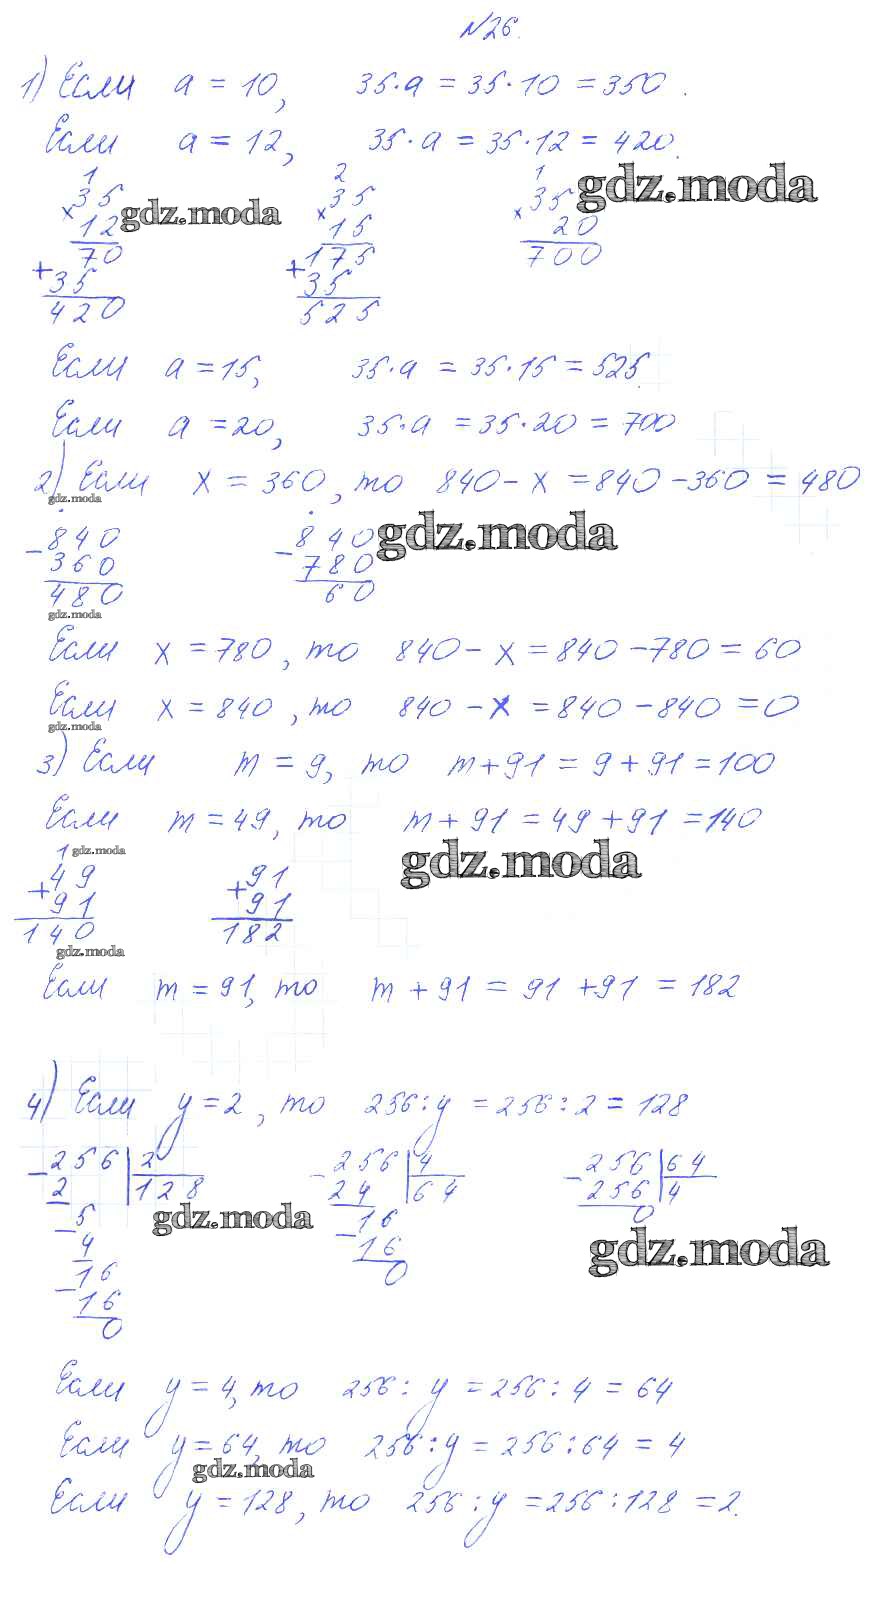 №26.
1) Если a = 10, 35·a = 35·10 = 350.
Если a = 12, 35·a = 35·12 = 420.
1 2 1
35 35 35
× 12 × 15 × 20
70 175 700
+ 35 + 35
420 525
gdz.moda
gdz.moda
Если a = 15, 35·a = 35·15 = 525.
Если a = 20, 35·a = 35·20 = 700
2) Если x = 360, то 840 - x = 840 - 360 = 480
gdz.moda
- 840 - 840
360 780
480 60
gdz.moda
gdz.moda
Если x = 780, то 840 - x = 840 - 780 = 60
Если x = 840, то 840 - x = 840 - 840 = 0
gdz.moda
3) Если m = 9, то m + 91 = 9 + 91 = 100
Если m = 49, то m + 91 = 49 + 91 = 140
1 gdz.moda
+ 49 + 91
91 91
140 182
gdz.moda
gdz.moda
Если m = 91, то m + 91 = 91 + 91 = 182
4) Если y = 2, то 256 : y = 256 : 2 = 128
- 256 | 2 - 256 | 4 - 256 | 64
2 | 128 24 | 64 256 | 4
- 5 - 16 0
4 16
- 16 0
16
0
gdz.moda
gdz.moda
Если y = 4, то 256 : y = 256 : 4 = 64
Если y = 64, то 256 : y = 256 : 64 = 4
gdz.moda
Если y = 128, то 256 : y = 256 : 128 = 2.